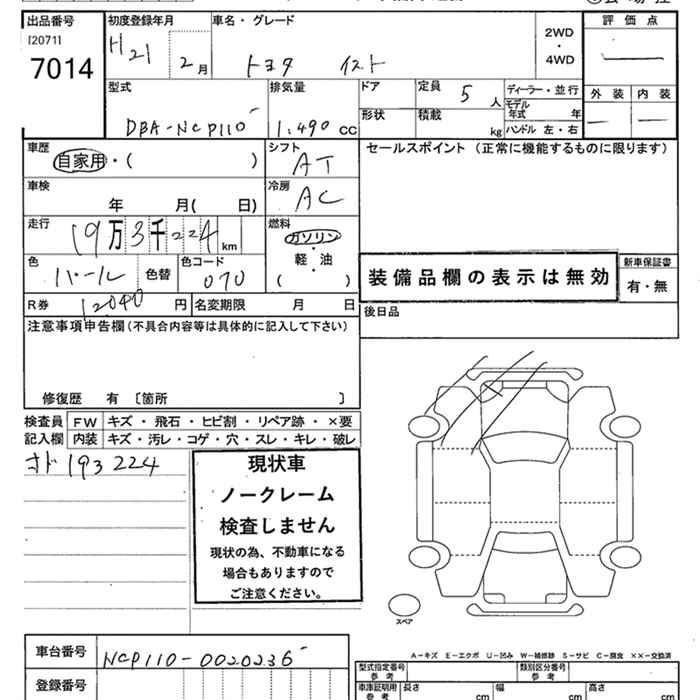 出品番号 初度登録年月 車名・グレード 評価点
[2071]
7014
H21 2月 トヨタ イスト
2WD
・
4WD
型式 排気量 ドア 定員 5人 ディーラー・並行
モデル年式 年
外装 内装
DBA-NCP110 1.490 CC 形状 積載 kg ハンドル 左・右
車歴 シフト セールスポイント (正常に機能するものに限ります)
自家用・( ) AT
車検 冷房
年 月( 日) AC
走行 燃料
19万3千224km ガソリン
軽・油
( )
色 色替 色コード
パール 070
装備品欄の表示は無効
新車保証書
有・無
R券 12040円 名変期限 月 日 後日品
注意事項申告欄(不具合内容等は具体的に記入して下さい)
修復歴 有 〔箇所 〕
検査員 FW キズ・飛石・ヒビ割・リペア跡・×要
記入欄 内装 キズ・汚レ・コゲ・穴・スレ・キレ・破レ
オド193224
現状車
ノークレーム
検査しません
現状の為、不動車になる
場合もありますので
ご注意ください。
スペア
A-キズ E-エクボ U-凹み W-補修跡 S-サビ C-腐食 ××-交換済
車台番号 NCP110-0020236
型式指定番号 参考 類別区分番号 参考
登録番号
車庫証明用 参考 長さ cm 幅 cm 高さ cm